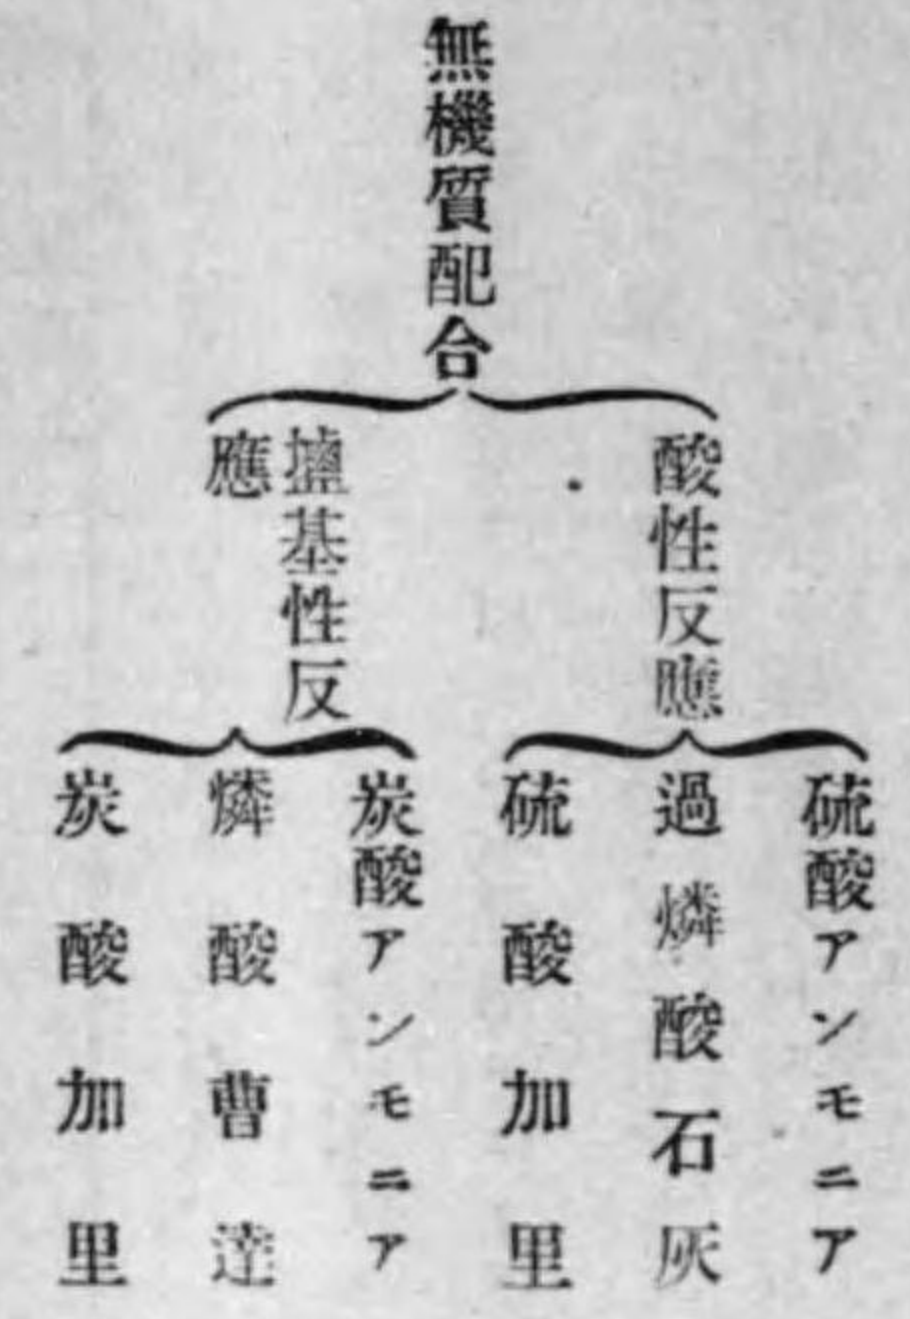 無機質配合
酸性反應
硫酸アンモニア
過燐酸石灰
硫酸加里
塩基性反
應
炭酸アンモニア
燐酸曹達
炭酸加里